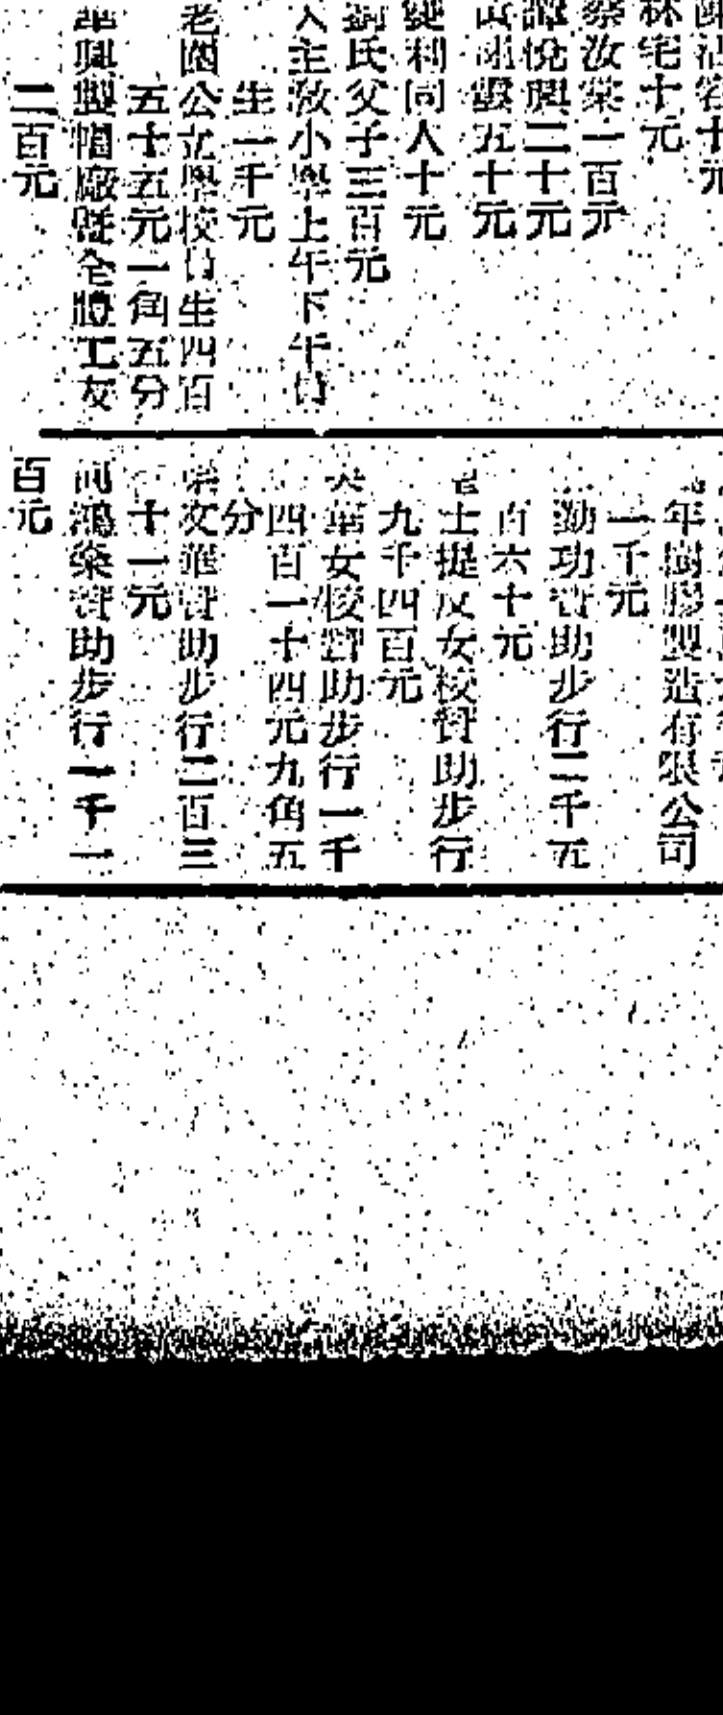 林宅十元
蔡汝棠一百元
譚悅興二十元
五十元
利同人十元
劉氏父子三百元
主教小學上午下午
生一千元
老圍公立學校員生四百
五十五元一角五分
華興製帽廠暨全體工友
二百元
年樹膠製造有限公司
一千元
勤功贊助步行二千五
百六十元
士提反女校贊助步行
九千四百元
華女校贊助步行一千
四百一十四元九角五
分
文華贊助步行二百三
十一元
鴻燊贊助步行一千一
百元